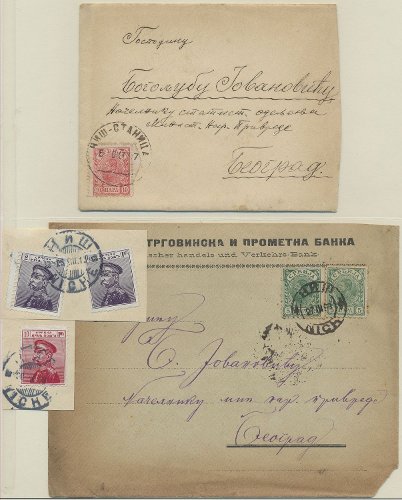 Господину
Боголубу Јовановићу
Начелнику статист. одељења
Минист. Нар. Привреде
НИШ-СТАНИЦА
Београд
ТРГОВИНСКА И ПРОМЕТНА БАНКА
handels und Verkehrs-Bank
НИШ
NICH
НИШ
NICH
10
NICH
Б. Јовановићу
Начелнику мин нар. привреде
Београд